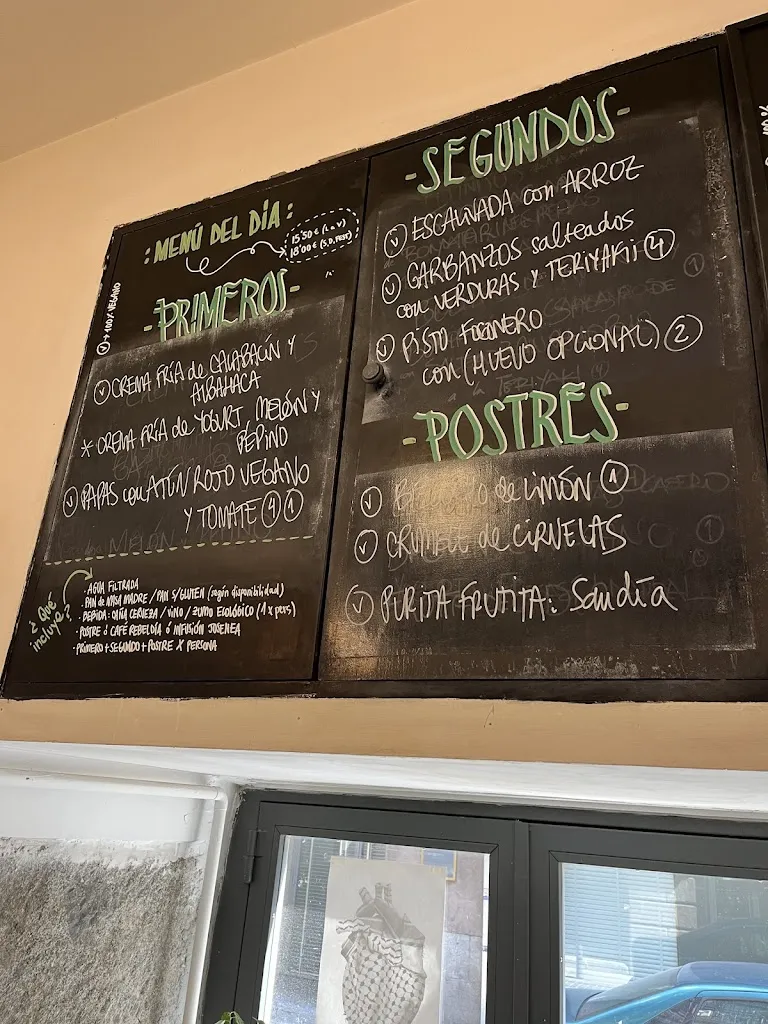 : MENÚ DEL DÍA :
15'50 € (L a V)
18'00 € (S, D, FEST)
Ⓥ → 100% VEGANO
- PRIMEROS -
Ⓥ CREMA FRÍA de CALABACÍN Y
ALBAHACA
* CREMA FRÍA de YOGURT, MELÓN Y
PEPINO
Ⓥ PAPAS con ATÚN ROJO VEGANO
Y TOMATE ④ ①
¿Qué
incluye?
· AGUA FILTRADA
· PAN de MASA MADRE / PAN S/GLUTEN (según disponibilidad)
· BEBIDA: CAÑA CERVEZA / VINO / ZUMO ECOLÓGICO (1 x pers)
· POSTRE ó CAFÉ REBELDÍA ó INFUSIÓN JOSENEA
· PRIMERO + SEGUNDO + POSTRE X PERSONA
- SEGUNDOS -
Ⓥ ESCALIVADA con ARROZ
Ⓥ GARBANZOS salteados
con VERDURAS Y TERIYAKII ④
Ⓥ PISTO
con (HUEVO OPCIONAL) ②
- POSTRES -
Ⓥ de LIMÓN ①
Ⓥ CRUMBLE de CIRUELAS
Ⓥ PURITA FRUTITA: Sandía
100 %